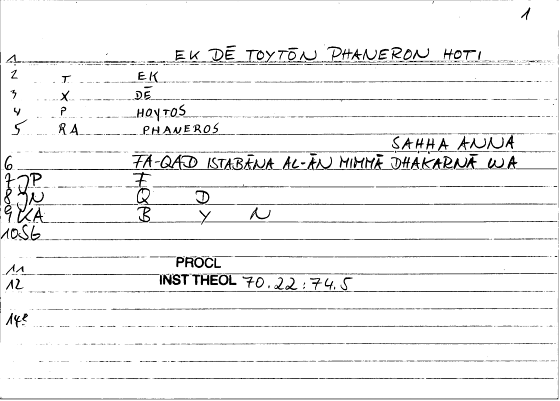 1
1 EK DĒ TOYTŌN PHANERON HOTI
2 T EK
3 X DĒ
4 P HOYTOS
5 RA PHANEROS
SAHHA ANNA
6 FA-QAD ISTABĀNA AL-ĀN MIMMĀ DHAKARNĀ WA
7 JP F
8 JN Q D
9 KA B Y N
10 SG
11 PROCL
12 INST THEOL 70.22:74.5
14e